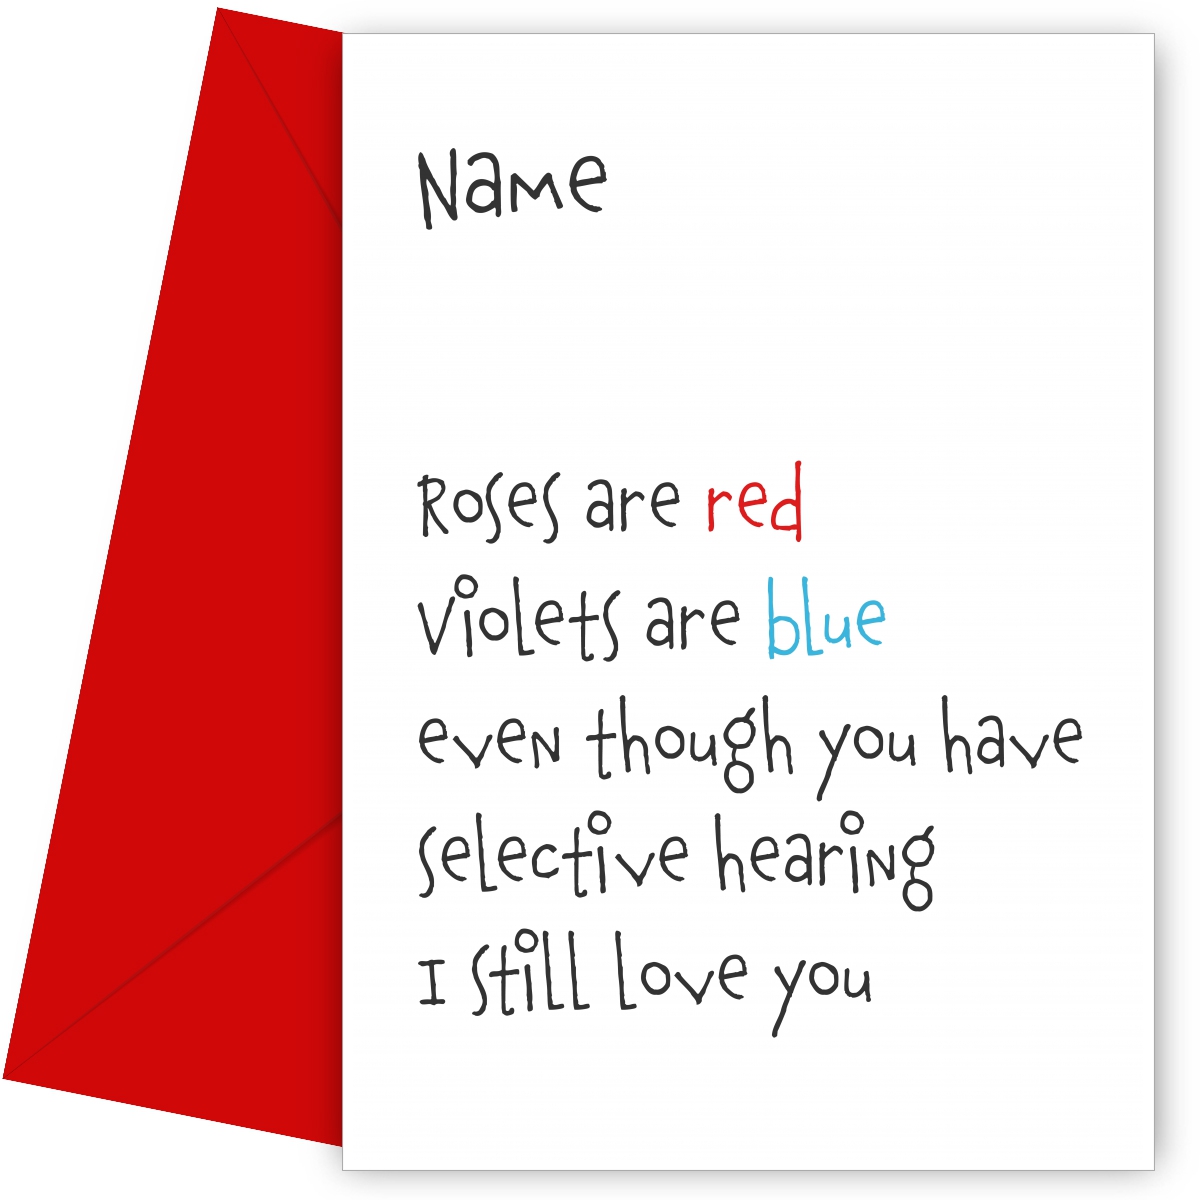 Name
Roses are red
Violets are blue
even though you have
selective hearing
I still love you